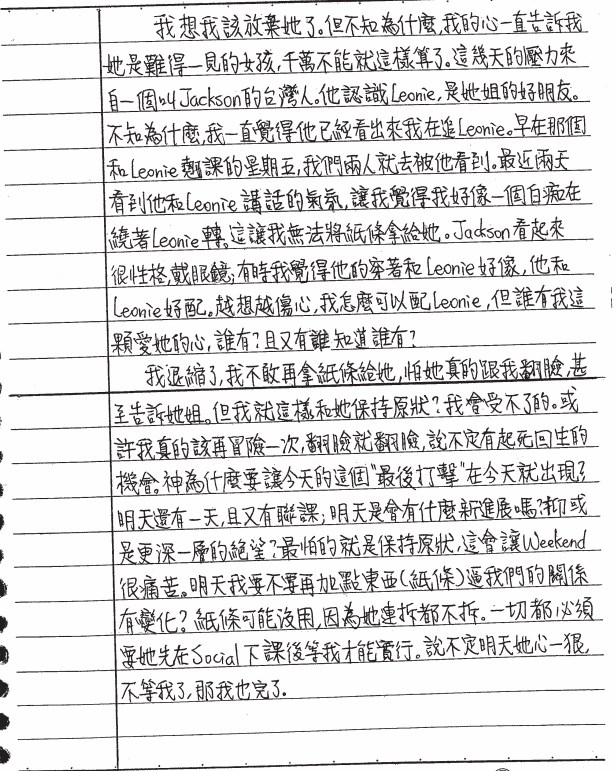 我想我該放棄她了。但不知為什麼,我的心一直告訴我
她是難得一見的女孩,千萬不能就這樣算了。這幾天的壓力來
自一個叫Jackson的台灣人。他認識Leonie,是她姐的好朋友。
不知為什麼,我一直覺得他已經看出來我在追Leonie。早在那個
和Leonie翹課的星期五,我們兩人就去被他看到。最近兩天
看到他和Leonie講話的氣氛,讓我覺得我好像一個白痴在
繞著Leonie轉。這讓我無法將紙條拿給她。Jackson看起來
很性格,戴眼鏡;有時我覺得他的穿著和Leonie好像,他和
Leonie好配。越想越傷心,我怎麼可以配Leonie,但誰有我這
顆愛她的心,誰有?且又有誰知道誰有?
我退縮了,我不敢再拿紙條給她,怕她真的跟我翻臉,甚
至告訴她姐。但我就這樣和她保持原狀?我會受不了的。或
許我真的該再冒險一次,翻臉就翻臉,說不定有起死回生的
機會。神為什麼要讓今天的這個"最後打擊"在今天就出現?
明天還有一天,且又有聯課;明天是會有什麼新進展嗎?抑或
是更深一層的絕望?最怕的就是保持原狀,這會讓Weekend
很痛苦。明天我要不要再加點東西(紙條)逼我們的關係
有變化?紙條可能沒用,因為她連拆都不拆。一切都必須
要她先在Social下課後等我才能實行。說不定明天她心一狠,
不等我了,那我也完了.